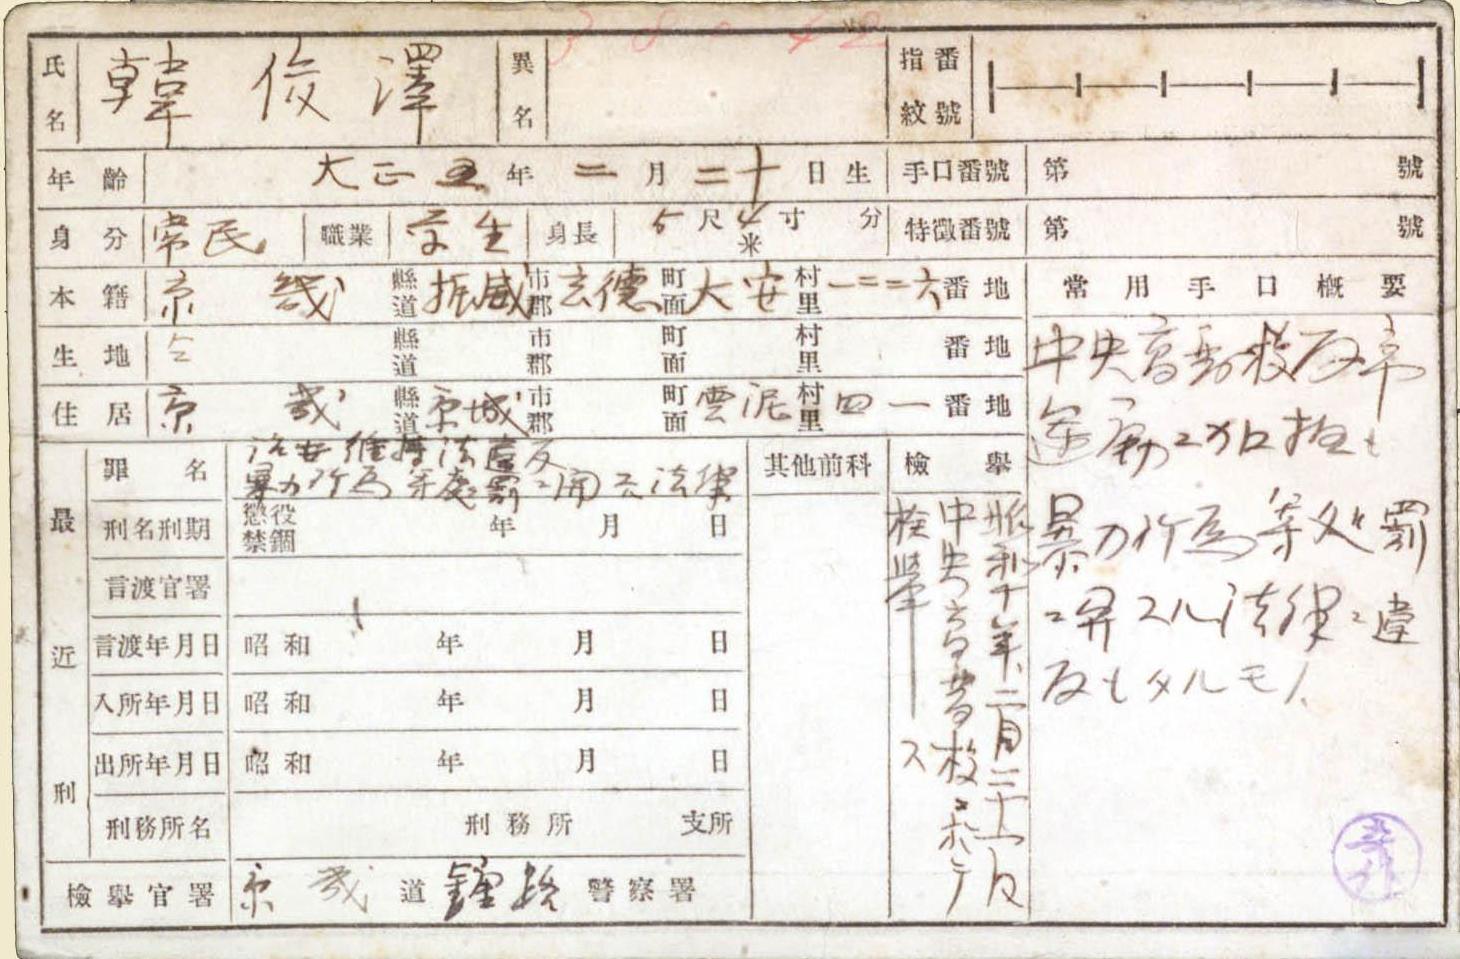 氏名 韓俊澤 異名 指紋番號
年齡 大正五年二月二十日生 手口番號 第 號
身分 常民 職業 学生 身長 5尺4寸 分 米 特徵番號 第 號
本籍 京畿 縣道 振威 市郡 玄德 町面 大安 村里 一二二六 番地 常用手口概要
生地 仝 縣道 市郡 町面 村里 番地
住居 京畿 縣道 京城 市郡 町面 雲泥 村里 四一 番地
中央高普校反帝
運動ニ加担シ
暴力行為等処罰
ニ関スル法律ニ違
反シタルモノ
最近刑
罪名 治安維持法違反
暴力行為等處罰ニ関スル法律
其他前科 檢舉
刑名刑期 懲役 禁錮 年 月 日
言渡官署
言渡年月日 昭和 年 月 日
入所年月日 昭和 年 月 日
出所年月日 昭和 年 月 日
刑務所名 刑務所 支所
昭和十年二月二十一日
中央高普校ニ於テ
檢挙ス
檢舉官署 京畿道 鍾路 警察署